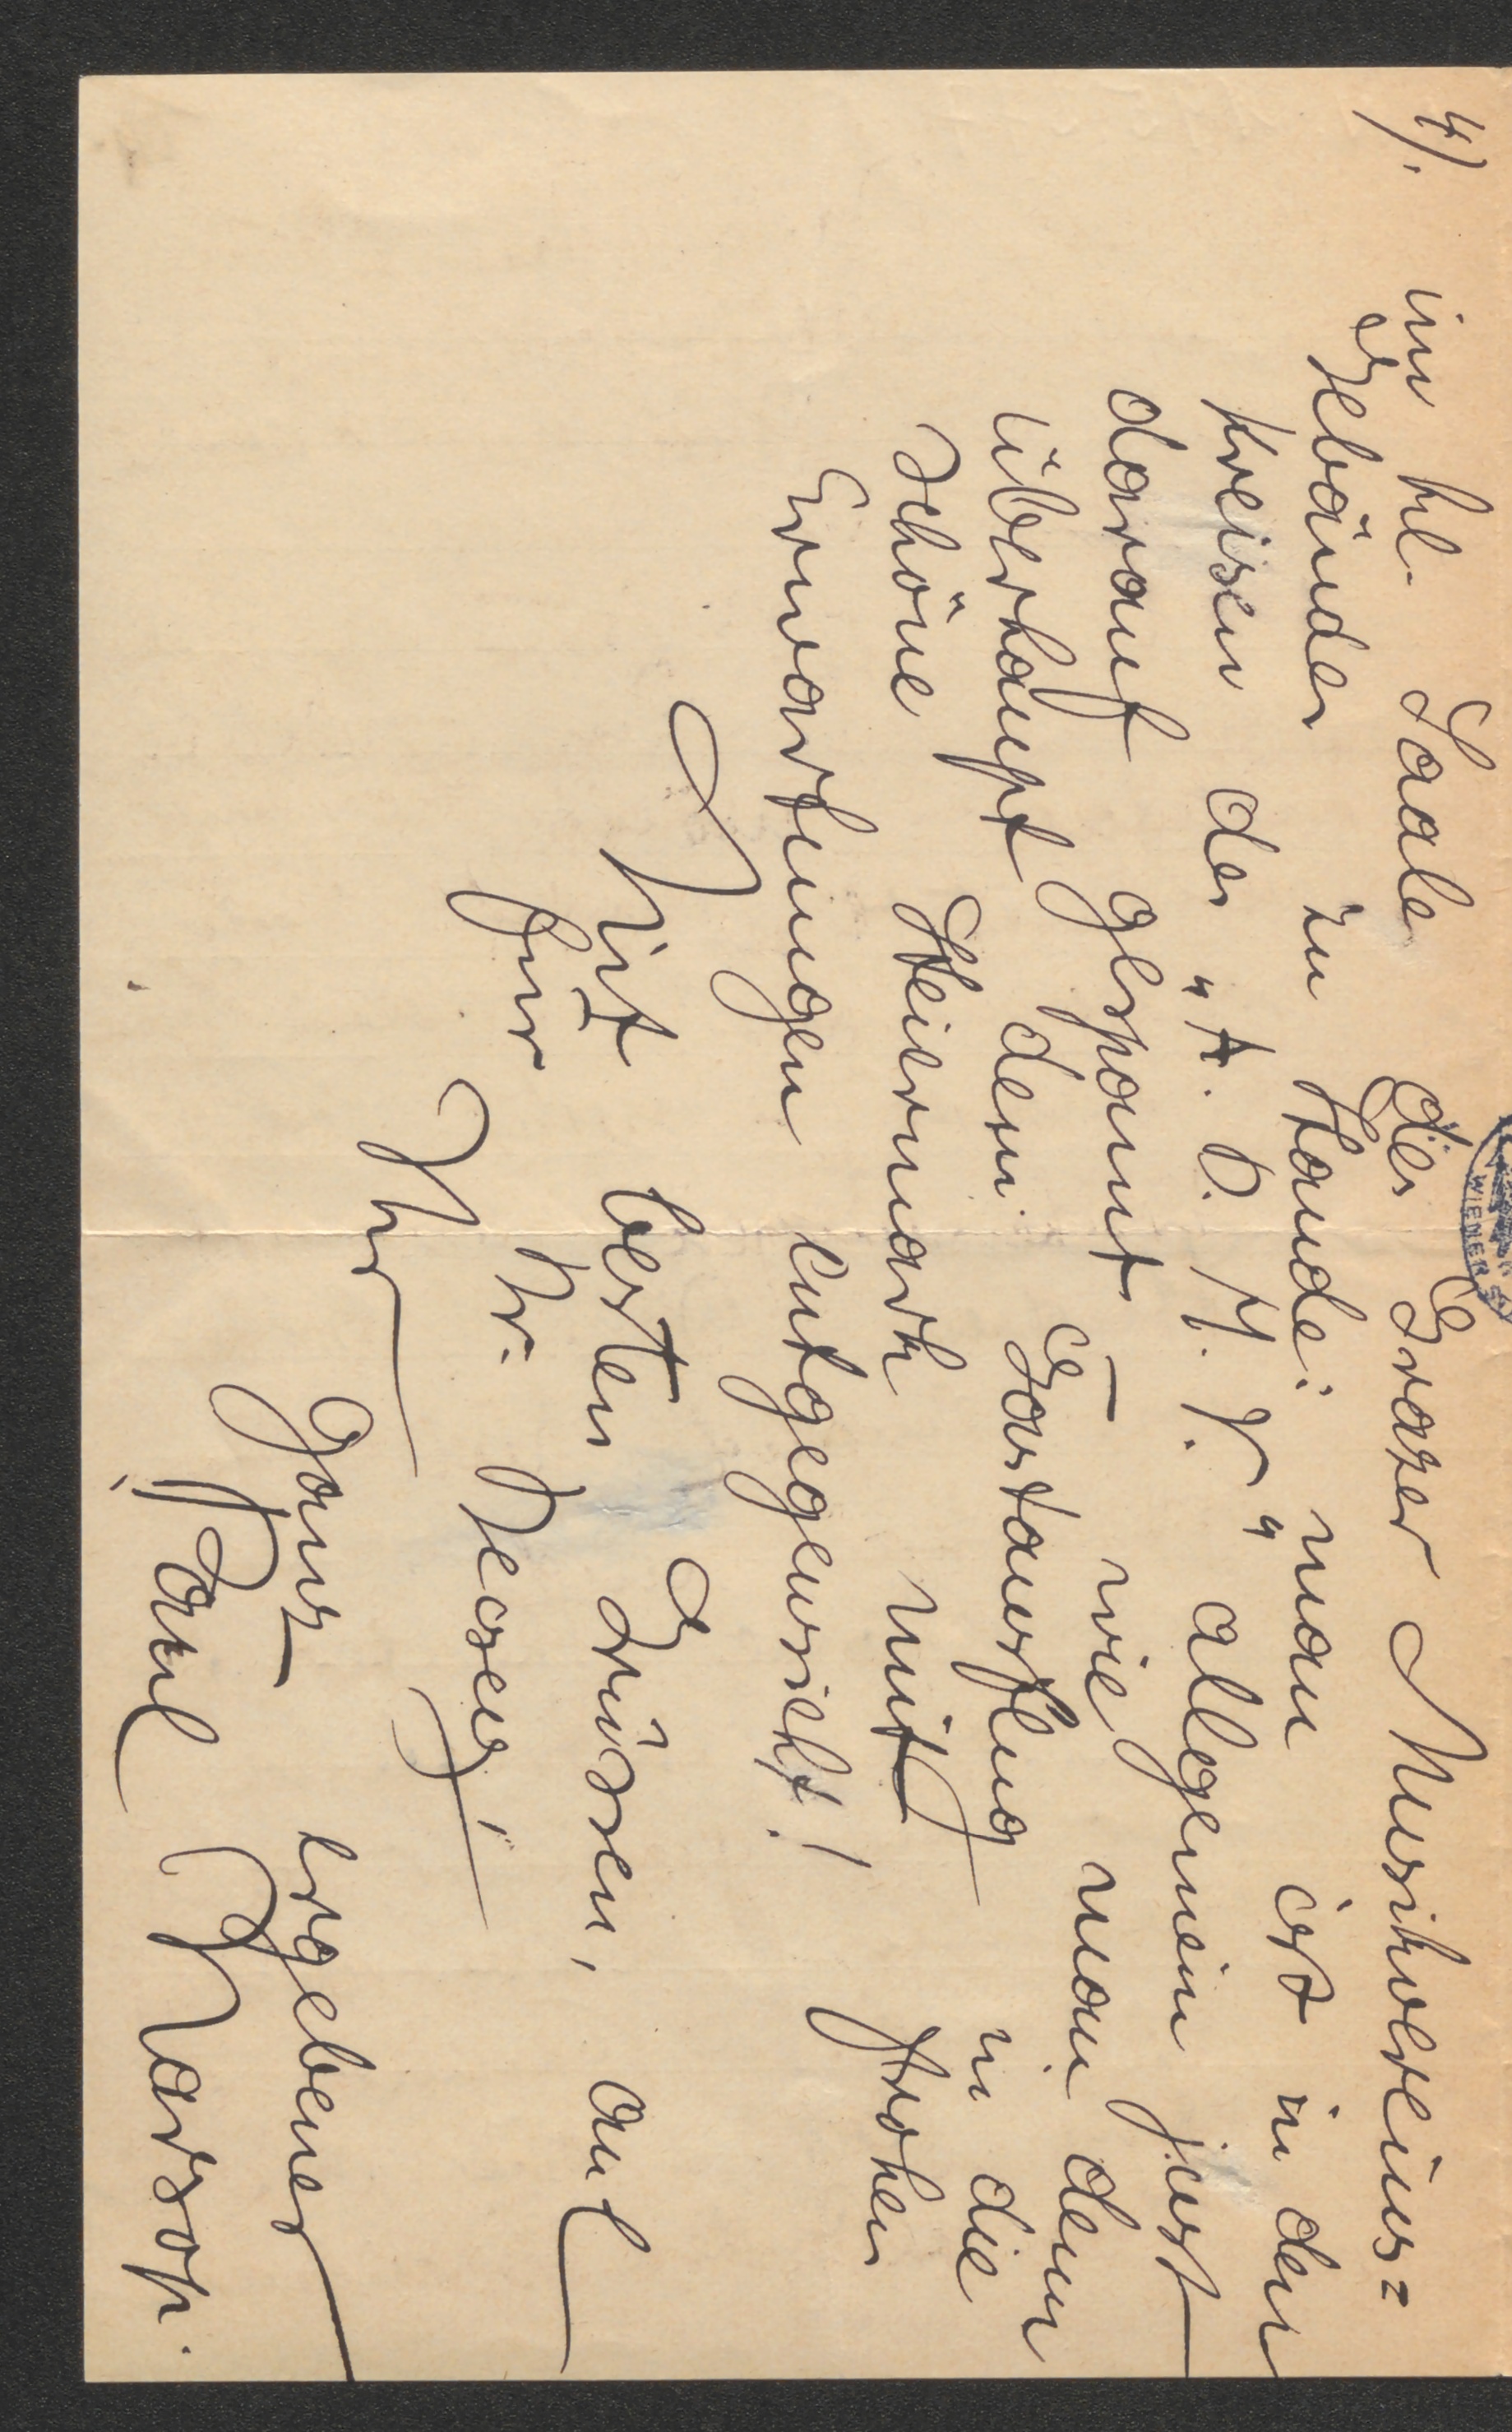 4/.
im kl. Saale des Grazer Musikvereins=
gebäudes zu Stande: man ist in den
Kreisen des "A. D. M. V." allgemein just
darauf gespannt – wie man denn
überhaupt dem Gastausflug in die
schöne Steiermark mit frohen
Erwartungen entgegensieht!
Mit besten Grüssen, auch
für Dr. Decsey,
Ihr
ganz ergebener
Paul Marsop.
WIENER